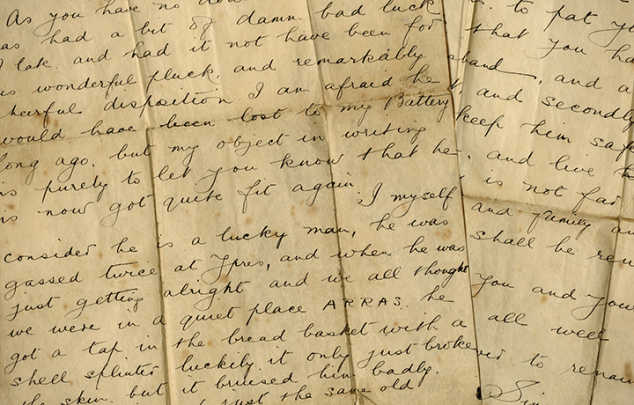 As you have no dou
as had a bit of damn bad luck
late. and had it not have been for
is wonderful pluck. and remarkably
heerful disposition I am afraid he
would have been lost to my Battery
long ago. but my object in writing
is purely to let you know that he
is now got quite fit again. I myself
consider he is a lucky man, he was
gassed twice at Ypres, and when he was
just getting alright and we all thought
we were in a quiet place ARRAS. he
got a tap in the bread basket with a
shell splinter luckily it only just broke
the skin. but it bruised him badly.
just the same old
to pat y
that you ha
band, and a
and secondly
keep him safe
and live
is not far
and family an
shall be ren
you and you
all well
ever to remain
Sin